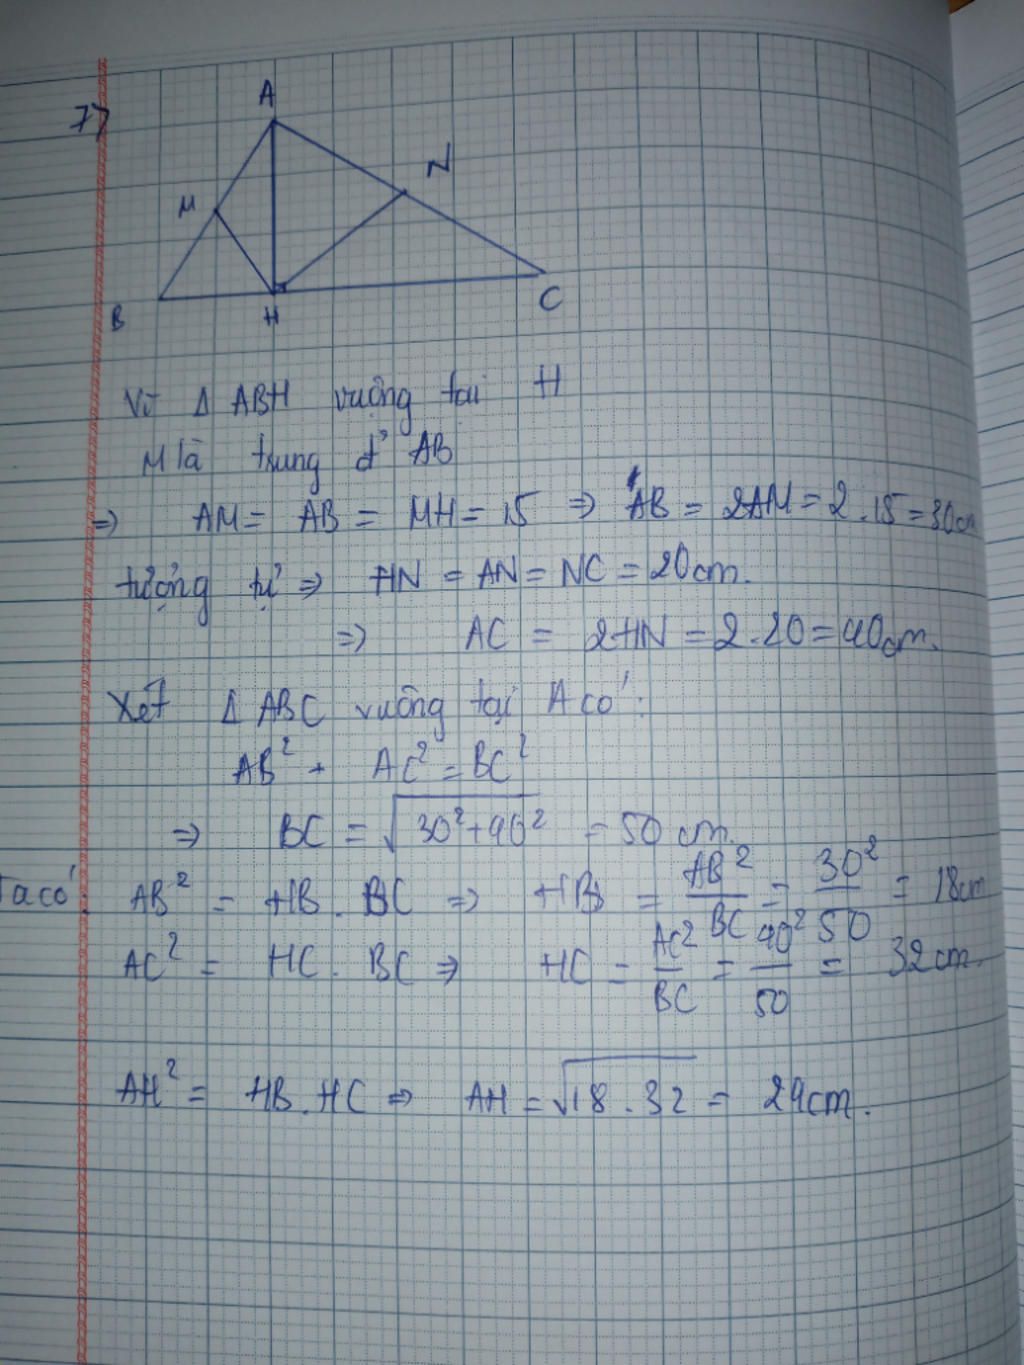 7)
A
N
M
B
H
C
Vì Δ ABH vuông tại H
M là trung đ' AB
=> AM = AB = MH = 15 => AB = 2AM = 2.15 = 30cm
tương tự => HN = AN = NC = 20cm.
=> AC = 2HN = 2.20 = 40cm.
Xét Δ ABC vuông tại A có:
AB² + AC² = BC²
=> BC = √30²+40² = 50 cm.
Ta có: AB² = HB . BC => HB = AB²/BC = 30²/50 = 18cm
AC² = HC . BC => HC = AC²/BC = 40²/50 = 32cm.
AH² = HB.HC => AH = √18.32 = 24cm.